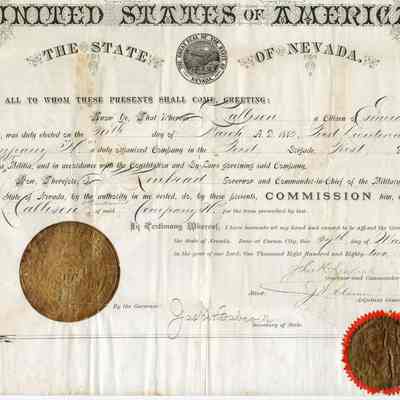 UNITED STATES OF AMERICA
THE STATE OF NEVADA.
ALL TO WHOM THESE PRESENTS SHALL COME, GREETING:
Know Ye, That Whereas Callison a Citizen of
was duly elected on the day of March A.D. 188 First Lieutenant
Company H a duly organized Company in the First Brigade, First
Militia, and in accordance with the Constitution and By-Laws governing said Company.
Now, Therefore, I, Kinkead Governor and Commander-in-Chief of the Military
State of Nevada, by the authority in me vested, do, by these presents, COMMISSION him,
Callison of said Company H. for the term prescribed by law.
In Testimony Whereof, I have hereunto set my hand and caused to be affixed the
the State of Nevada. Done at Carson City, this day of
in the year of our Lord, One Thousand Eight Hundred and Eighty-two
Governor and Commander
Attest
Adjutant General
By the Governor:
Secretary of State.